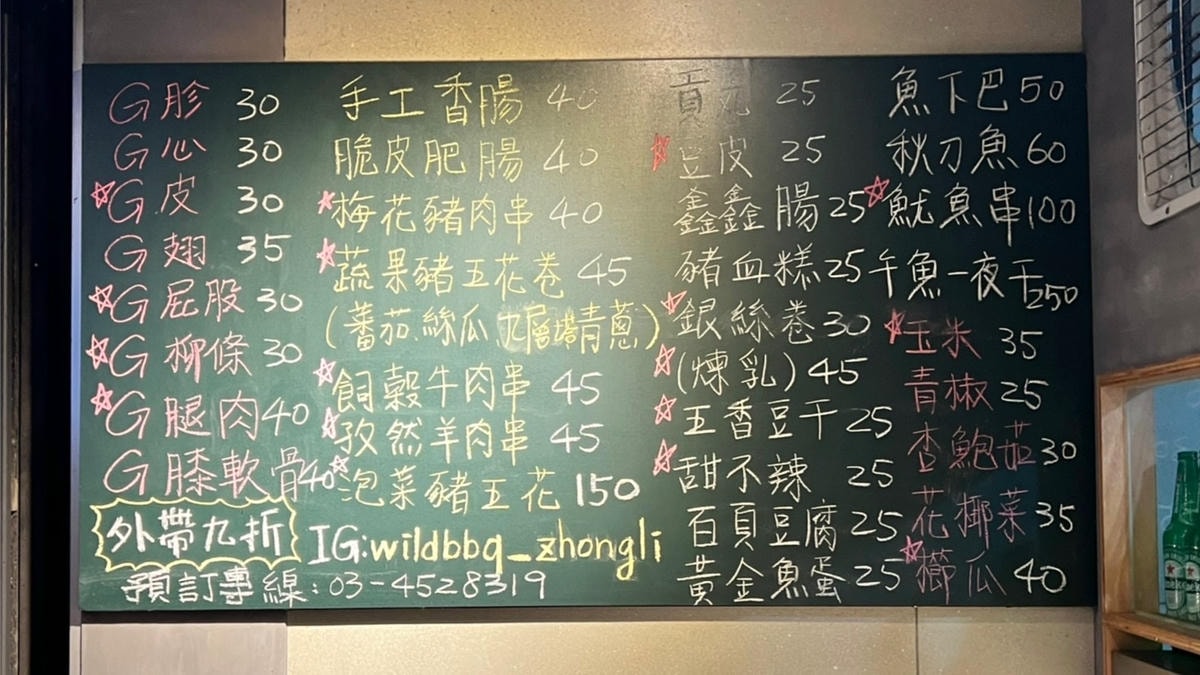 G胗 30
G心 30
G皮 30
G翅 35
G屁股 30
G柳條 30
G腿肉40
G膝軟骨40
外帶九折
手工香腸 40
脆皮肥腸 40
梅花豬肉串 40
蔬果豬五花卷 45
(蕃茄.絲瓜.九層塔青蔥)
飼穀牛肉串 45
孜然羊肉串 45
泡菜豬五花 150
IG:wildbbq_zhongli
預訂專線:03-4528319
貢丸 25
豆皮 25
鑫鑫腸25
豬血糕25
銀絲卷30
(煉乳)45
五香豆干25
甜不辣 25
百頁豆腐25
黃金魚蛋25
魚下巴50
秋刀魚60
魷魚串100
午魚一夜干250
玉米 35
青椒25
杏鮑茄30
花椰菜35
櫛瓜40